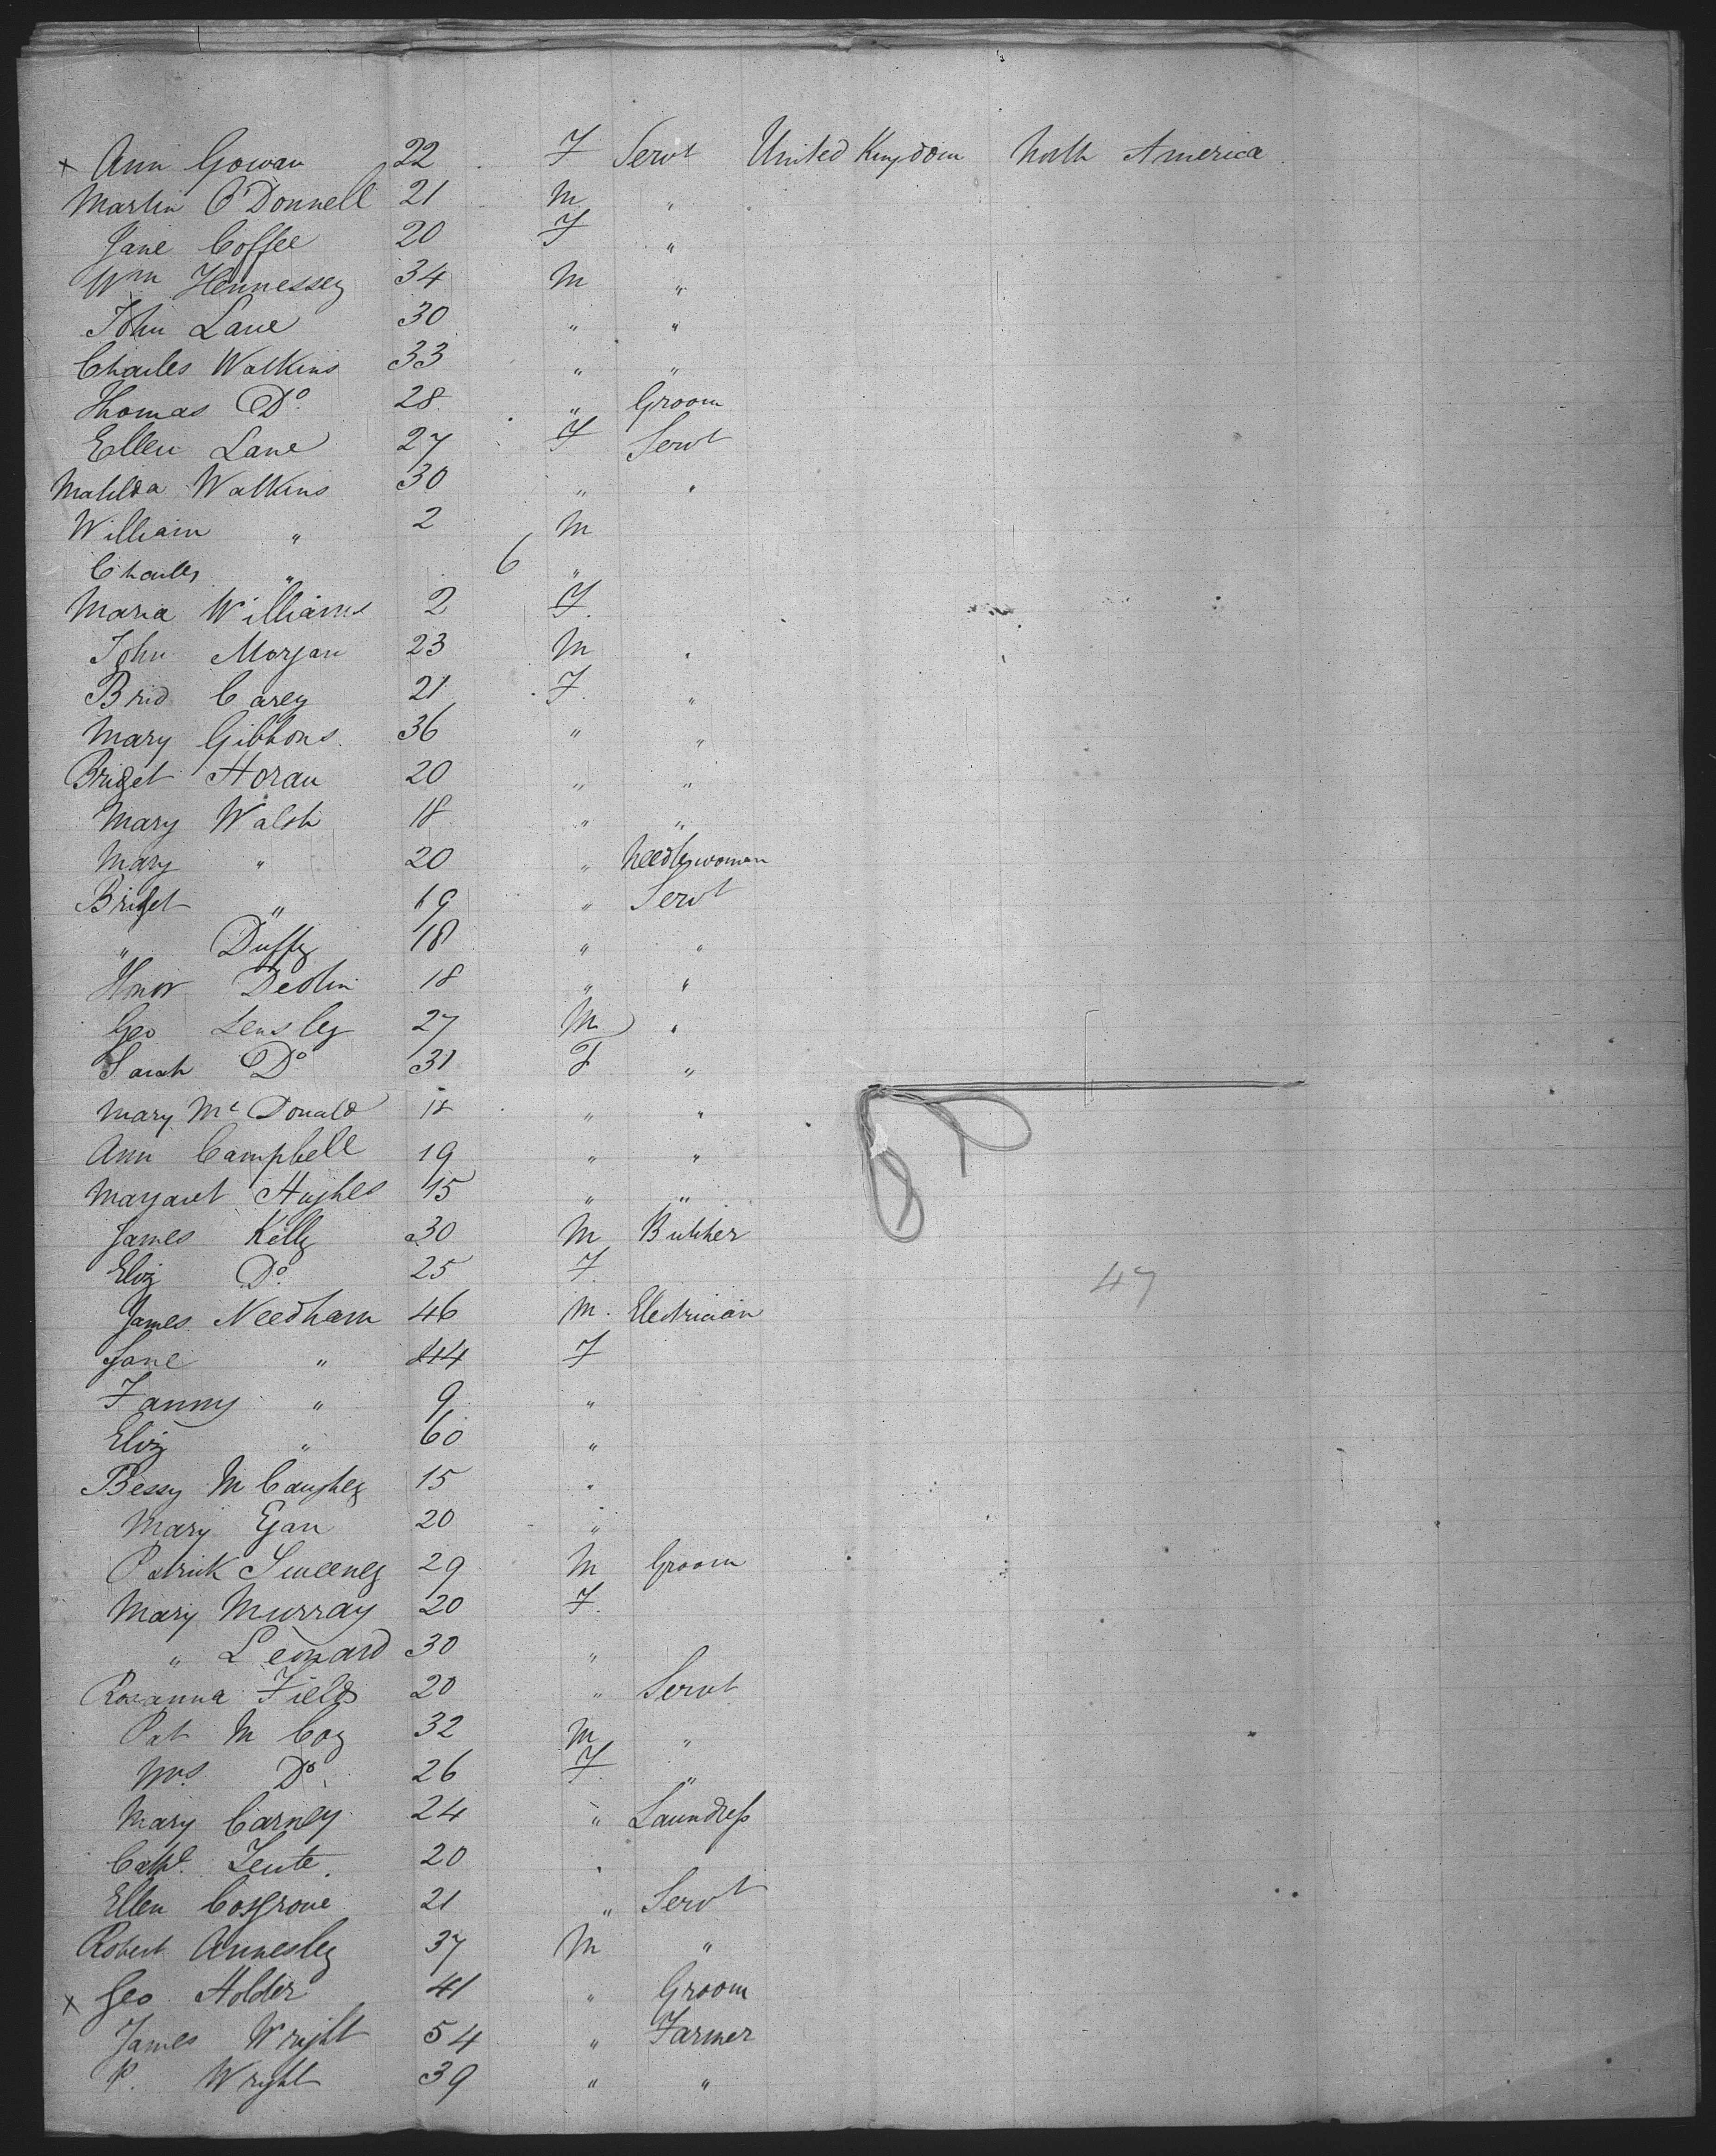 x Ann Gowan 22 F Servt United Kingdom North America
Martin O'Donnell 21 M "
Jane Coffee 20 F "
Wm Hennessey 34 M "
John Lane 30 " "
Charles Watkins 33 " "
Thomas Do. 28 " Groom
Ellen Lane 27 F Servt
Matilda Watkins 30 " "
William " 2 M
Charles " 6 "
Maria Williams 2 F.
John Morgan 23 M "
Brid Carey 21 F. "
Mary Gibbons 36 " "
Bridget Horan 20 " "
Mary Walsh 18 " "
Mary " 20 " Needlewoman
Bridget " 19 " Servt
" Duffy 18 " "
Honor Devlin 18 " "
Geo Lensley 27 M "
Sarah Do 31 F "
Mary McDonald 18 " "
Ann Campbell 19 " "
Margaret Hughes 15 " "
James Kelly 30 M Butcher
Eliz Do. 25 F.
47
James Needham 46 M. Electrician
Jane " 44 F
Fanny " 9 "
Eliz " 60 "
Bessy McCaughey 15 "
Mary Egan 20 "
Patrick Sweeney 29 M Groom
Mary Murray 20 F.
" Leonard 30 "
Rosanna Fields 20 " Servt
Pat McCoy 32 M "
Mrs Do. 26 F "
Mary Carney 24 " Laundress
Cathe. 20 "
Ellen Cosgrove 21 " Servt
Robert Annesley 37 M "
x Geo Holder 41 " Groom
James Wright 54 " Farmer
P. Wright 39 " "